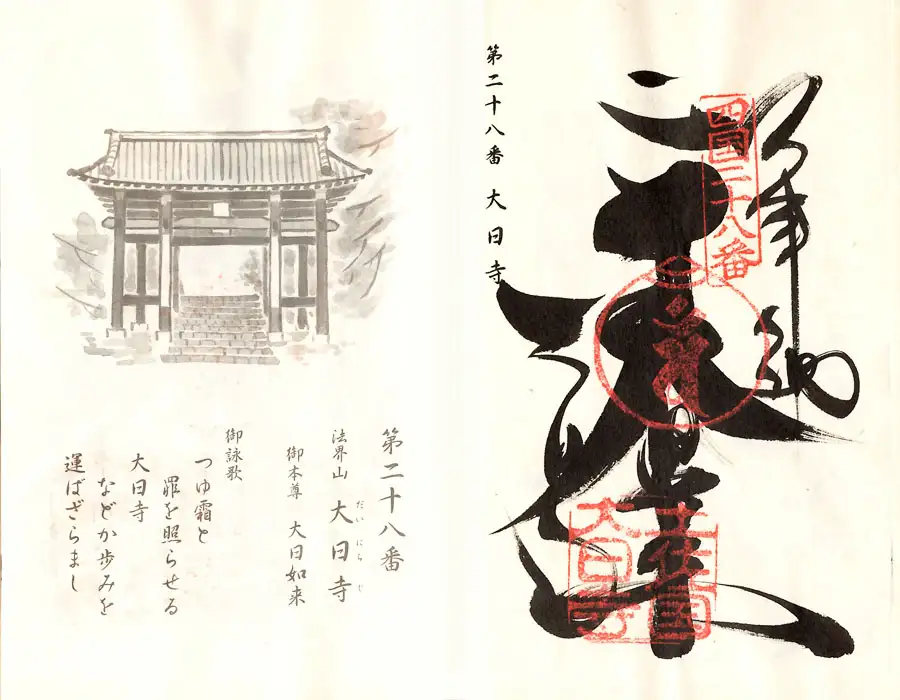 奉納
四国二十八番
土佐国
大日寺
第二十八番 大日寺
第二十八番
法界山 大日寺
だいにちじ
御本尊 大日如来
御詠歌
つゆ霜と
罪を照らせる
大日寺
などか歩みを
運ばざらまし